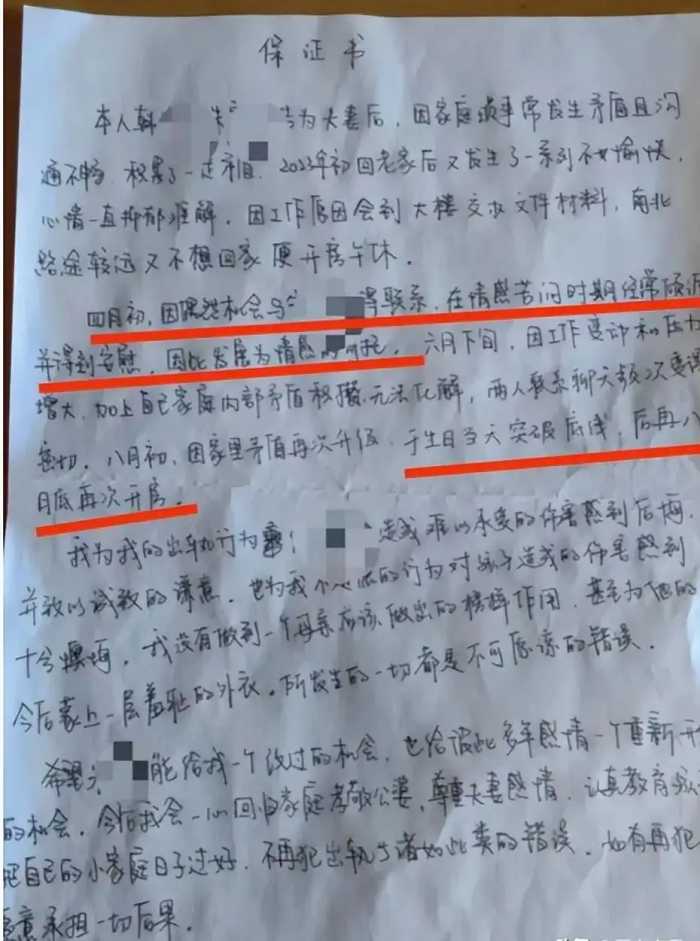 保证书
本人韩 朱 为夫妻后，因家庭琐事常发生矛盾且沟
通不畅，积累了一定 2023年初回老家后又发生了一系列不愉快，
心情一直抑郁难解，因工作原因会到大楼交收文件材料，南北
路途较远又不想回家便开房午休。
四月初，因偶然机会与 得联系，在情感苦闷时期经常倾诉
并得到安慰，因此发展为情感的 。六月下旬，因工作变动和压力
增大，加上自己家庭内部矛盾积攒无法化解，两人联系聊天频次变得
密切。八月初，因家里矛盾再次升级，于生日当天突破底线，后再八
月底再次开房。
我为我的出轨行为 造成难以承受的伤害感到后悔，
并致以诚挚的 歉意，也为我 的行为对孩子造成的伤害感到
十分懊悔，我没有做到一个母亲应该做出的榜样作用，甚至为他的
今后蒙上一层羞耻的外衣。所发生的一切都是不可原谅的错误。
希望 能给我一个改过的机会，也给彼此多年感情一个重新开
的机会，今后我会一心回归家庭孝敬公婆，尊重夫妻感情，认真教育孩
把自己的小家庭日子过好，不再犯出轨 诸如此类的错误，如有再犯
愿意承担一切后果。